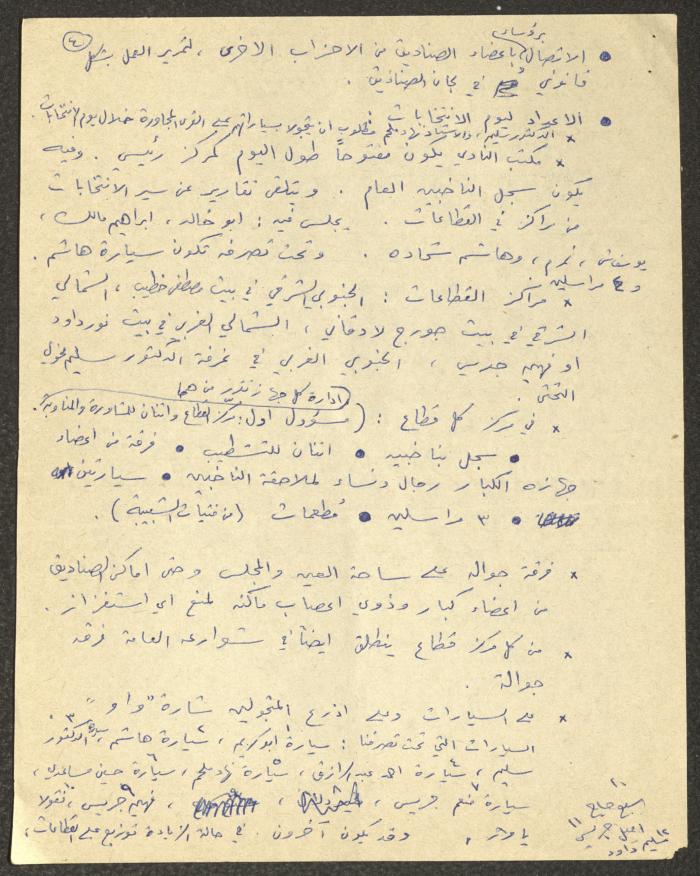 ٤
برؤساء
• الاتصال باعضاء الصناديق من الاحزاب الاخرى ، لتمرير العمل بشكل
قانوني في لجان الصناديق .
• الاعداد ليوم الانتخابات
× الدكتور سليم، والاستاذ نهاد ملحم مطلوب ان يتجولا بسياراتهم على القرى المجاورة خلال يوم الانتخابات .
× مكتب النادي يكون مفتوحاً طول اليوم كمركز رئيسي . وفيه
يكون سجل الناخبين العام . ويتلقى تقارير عن سير الانتخابات
من مراكز في القطاعات . يجلس فيه : ابو خالد ، ابراهيم مالك ،
، وهاشم شحاده . وتحت تصرفه تكون سيارة هاشم .
و ٤ مراسلين
× مراكز القطاعات : الجنوبي الشرقي في بيت مصطفى خطيب ، الشمالي
الشرقي في بيت جورج لادقاني ، الشمالي الغربي في بيت نور داود
او فهيم جريس ، الجنوبي الغربي في غرفة الدكتور سليم مخولي
التحتى .
ادارة كل جهاز تتدور من هنا
× في مركز كل قطاع : ( مسؤول اول : مركز القطاع واثنان للمشاورة والمناوبة.
• سجل بناخبيه • اثنان للتشطيب • فرقة من اعضاء
جهازه الكبار رجال ونساء لملاحقة الناخبين • سيارتين
• ٣ مراسلين • مُطعمات ( من فتيات الشبيبة ) .
× فرقة جوالة على ساحة العين والمجلس وحتى اماكن الصناديق
من اعضاء كبار وذوي اعصاب ماكنة لمنع اي استفزاز .
× من كل مركز قطاع ينطلق ايضاً في شوارعه العامة فرقة
جوالة .
× على السيارات وعلى اذرع المتجولين شارة "واو" .
السيارات التي تحت تصرفنا : سيارة ابو كريم ١، سيارة هاشم ٢، سيارة الدكتور ٣
سليم ، سيارة احمد عبد الرازق ٤، سيارة نهاد ملحم ٥، سيارة حسين مساعدي ٦،
سيارة منعم جريس ٧، ، فهيم جريس ٩، نقولا
. وقد يكون آخرون . في حالة الزيادة توزيع على القطاعات،
١٠
حاج
١١ اميل جريس
١٢ سليم داود